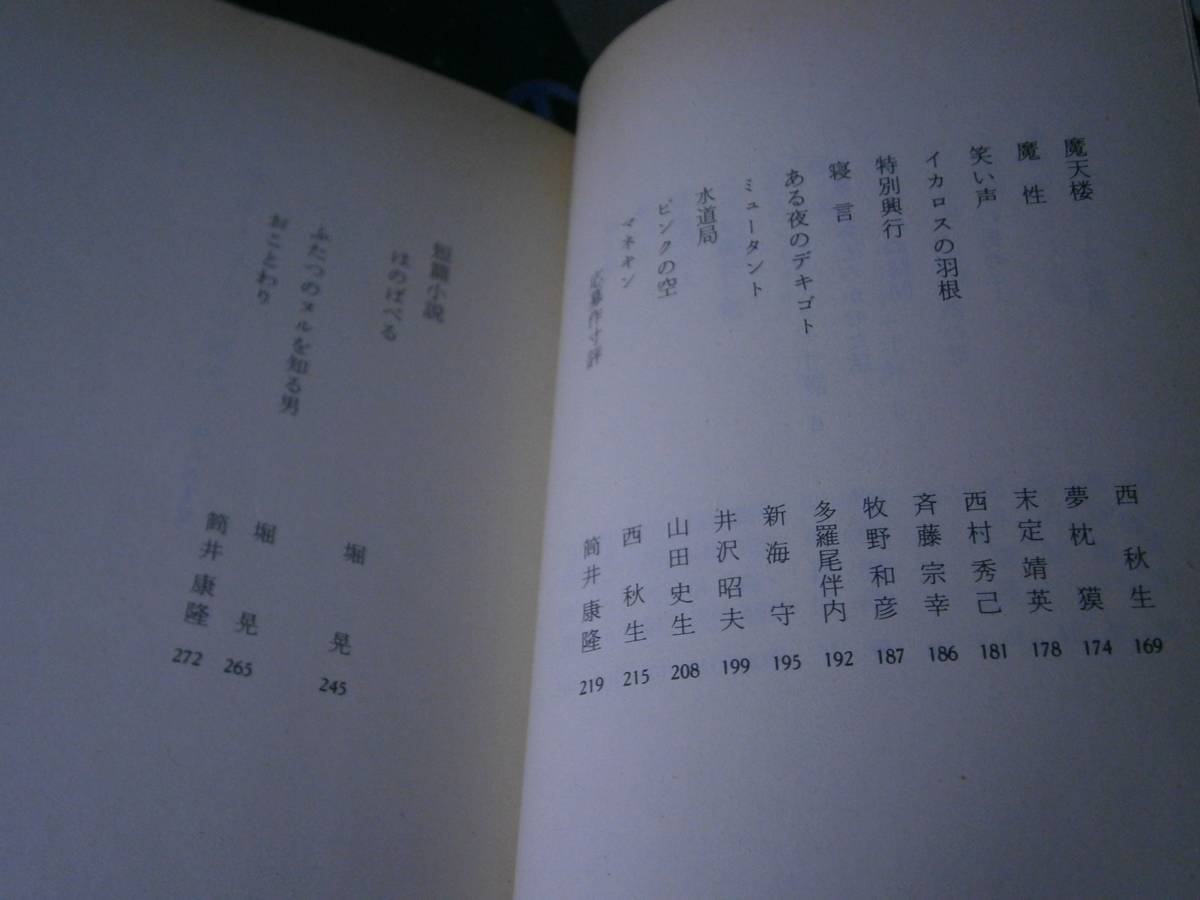 魔天楼 西秋生 169
魔性 夢枕獏 174
笑い声 末定靖英 178
イカロスの羽根 西村秀己 181
特別興行 斉藤宗幸 186
寝言 牧野和彦 187
ある夜のデキゴト 多羅尾伴内 192
ミュータント 新海守 195
水道局 井沢昭夫 199
ピンクの空 山田史生 208
マネキン 西秋生 215
応募作寸評 筒井康隆 219
短篇小説
ほのぼべる 堀晃 245
ふたつのヌルを知る男 堀晃 265
おことわり 筒井康隆 272